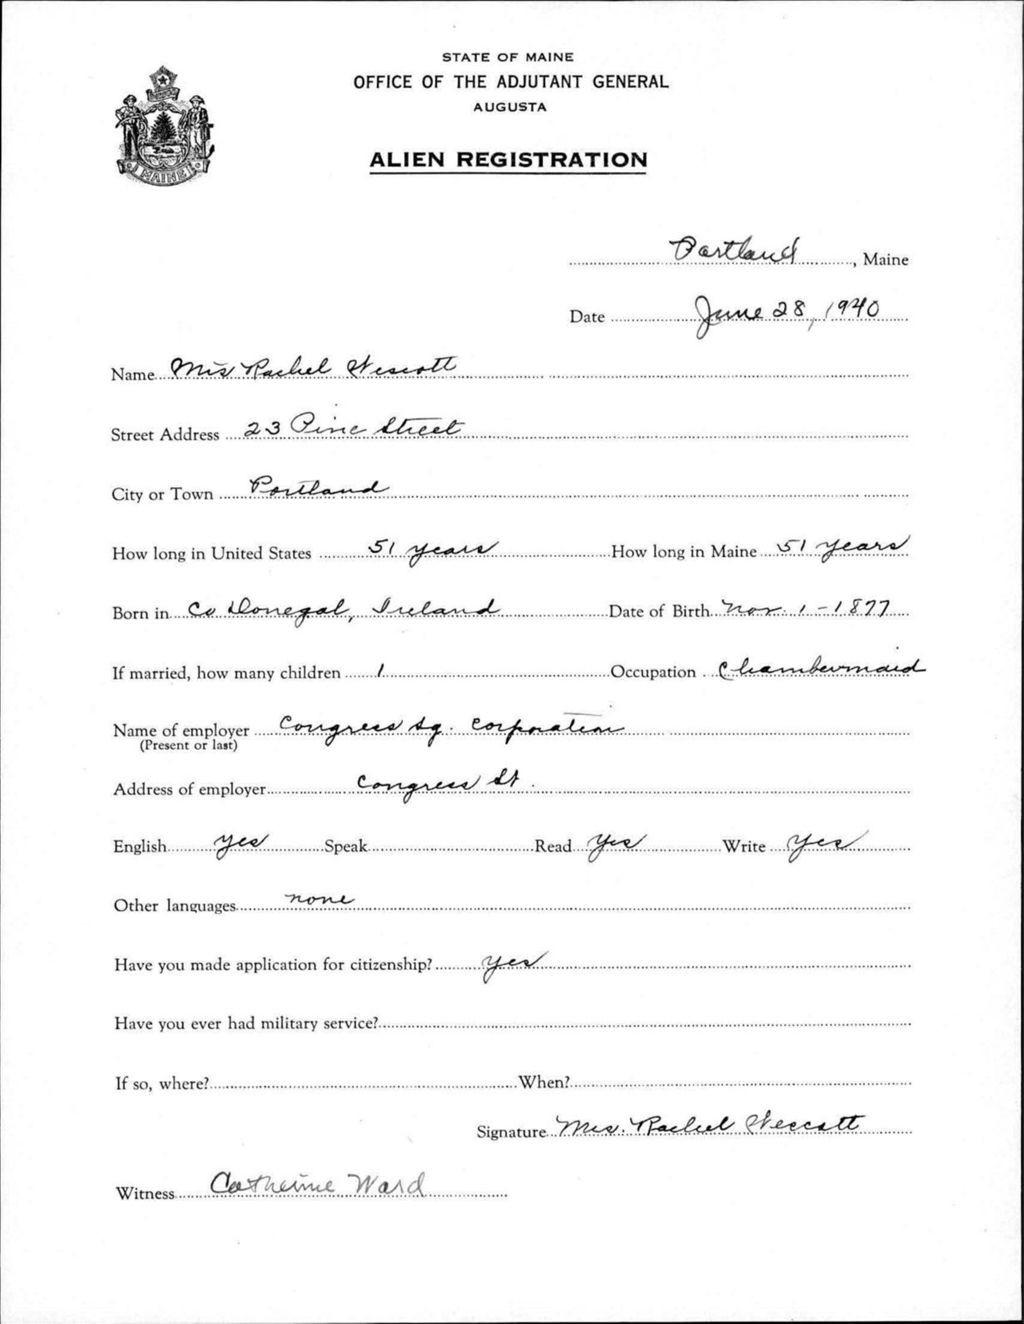 STATE OF MAINE
OFFICE OF THE ADJUTANT GENERAL
AUGUSTA
MAINE
ALIEN REGISTRATION
Portland, Maine
Date June 28, 1940
Name Mrs Rachel Wescott
Street Address 23 Pine Street
City or Town Portland
How long in United States 51 years How long in Maine 51 years
Born in Co Donegal, Ireland Date of Birth Nov. 1-1877
If married, how many children 1 Occupation Chambermaid
Name of employer Congress Sq. Corporation
(Present or last)
Address of employer Congress St.
English yes Speak Read Yes Write Yes
Other languages none
Have you made application for citizenship? yes
Have you ever had military service?
If so, where? When?
Signature Mrs. Rachel Wescott
Witness Catherine Ward